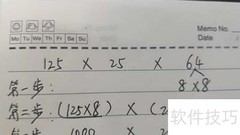 Memo No.
Mo Tu We Th Fr Sa Su
Date
125 × 25 × 64
第一步: 8×8
第二步: (125×8) × (2
1000 ×
软件技巧